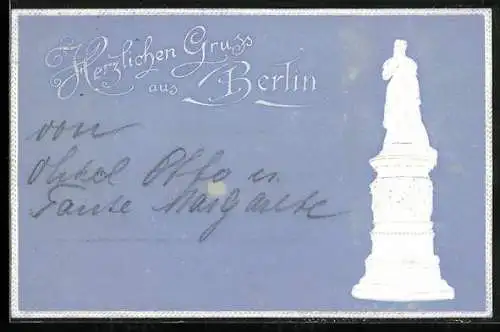 Herzlichen Gruss
aus Berlin
von
Onkel Otto u.
Tante Margarete